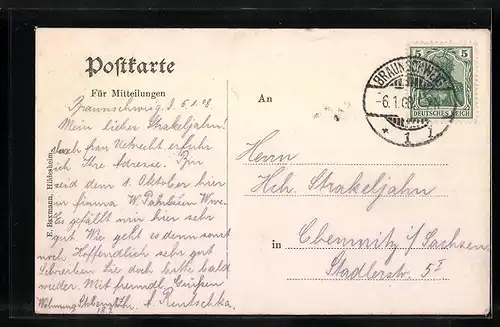 Postkarte
Für Mitteilungen
Braunschweig, d. 5.1.08
Mein lieber Strakeljahn!
Durch Frau erfuhr
ich Ihre Adresse. Bin
seid dem 1. Oktober hier
in Firma W.
Es gefällt mir hier sehr
gut. Wie geht es denn sonst
noch. Hoffendlich sehr gut
Schreiben Sie doch bitte bald
wieder. Mit freundl. Grüßen
Wohnung A.
E. Baxmann, Hildesheim
An
Herrn
Hch. Strakeljahn
in Chemnitz i/Sachsen
Stadlerstr. 5 I
5 5
DEUTSCHES REICH
BRAUNSCHWEIG
-6.1.08
* 1 1